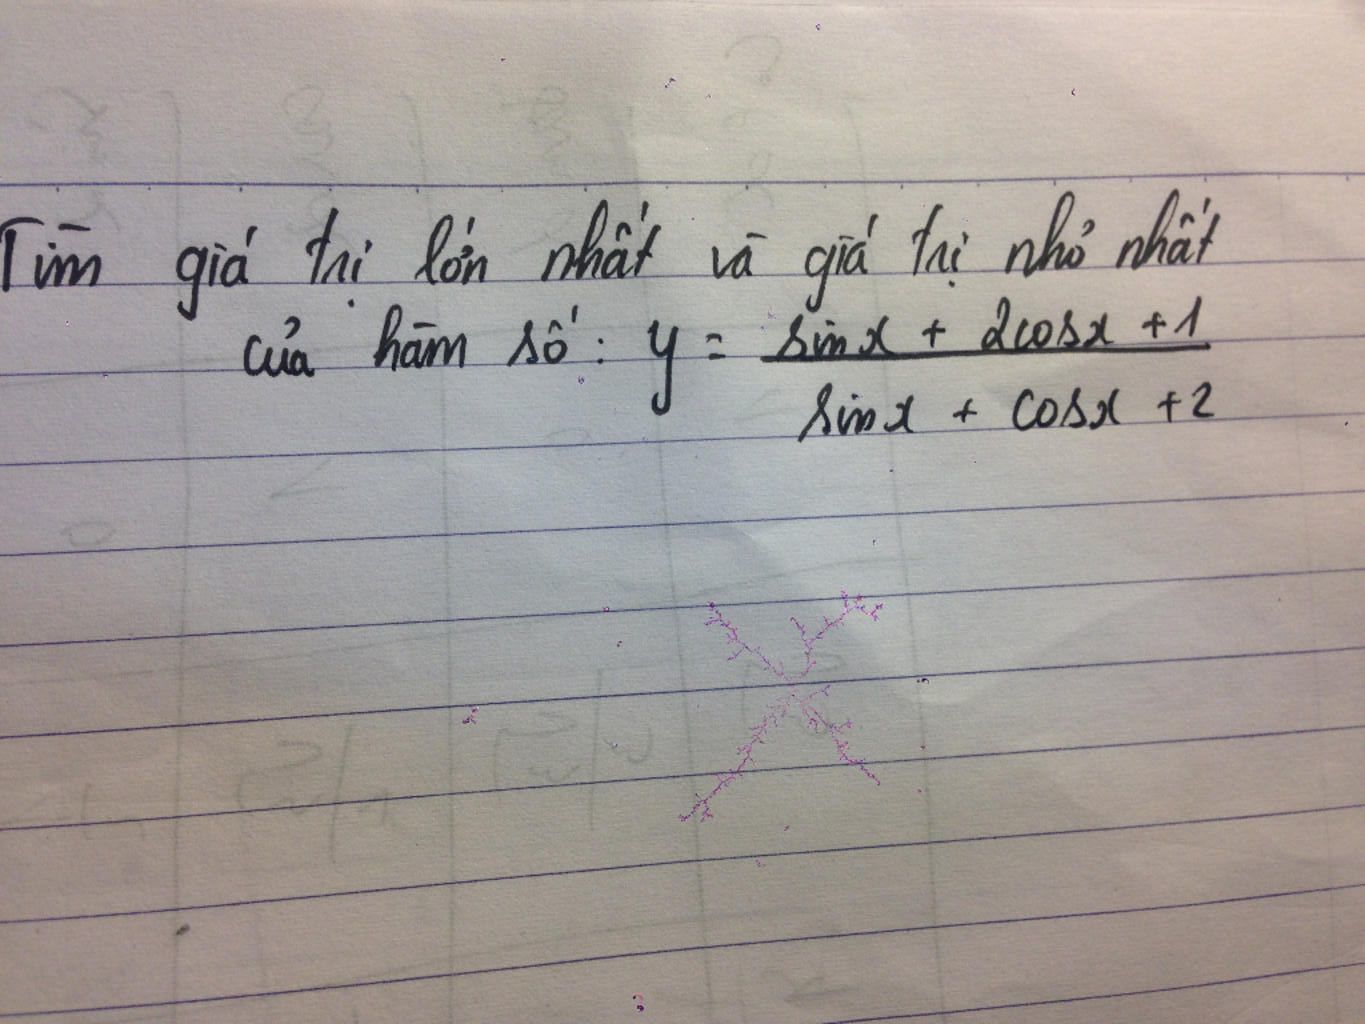 Tìm giá trị lớn nhất và giá trị nhỏ nhất
của hàm số: y = (sinx + 2cosx + 1) / (sinx + cosx + 2)